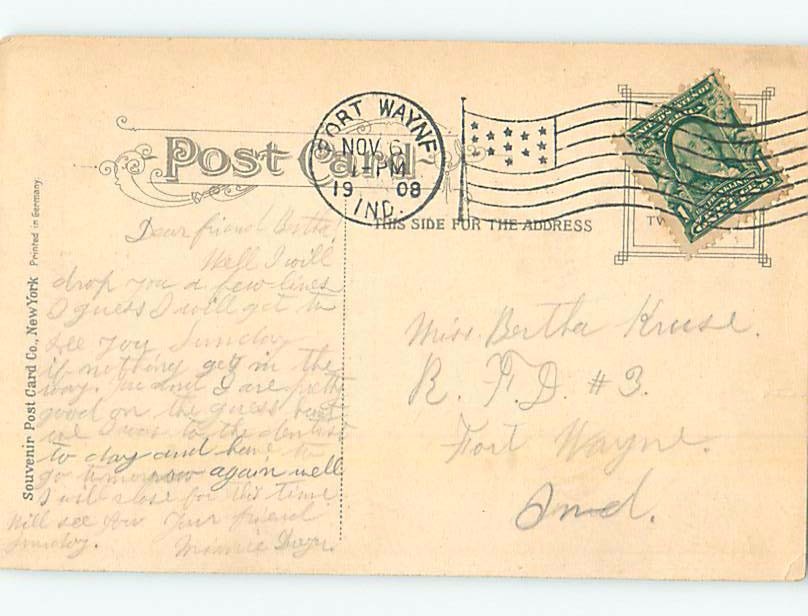 Post Card
FORT WAYNE
NOV 6
1- PM
19 08
IND.
THIS SIDE FOR THE ADDRESS
Souvenir Post Card Co., New York Printed in Germany.
Dear friend Bertha
Well I will
drop you a few lines
I guess I will get to
see you Sunday
if nothing get in the
way. and I are
good on the guess
I was to the dentist
to day and have to
go tomorrow again well
I will close for this time
Will see you Your friend
Sunday. Minnie
Miss. Bertha Kruse.
R. F. D. #3.
Fort Wayne.
Ind.